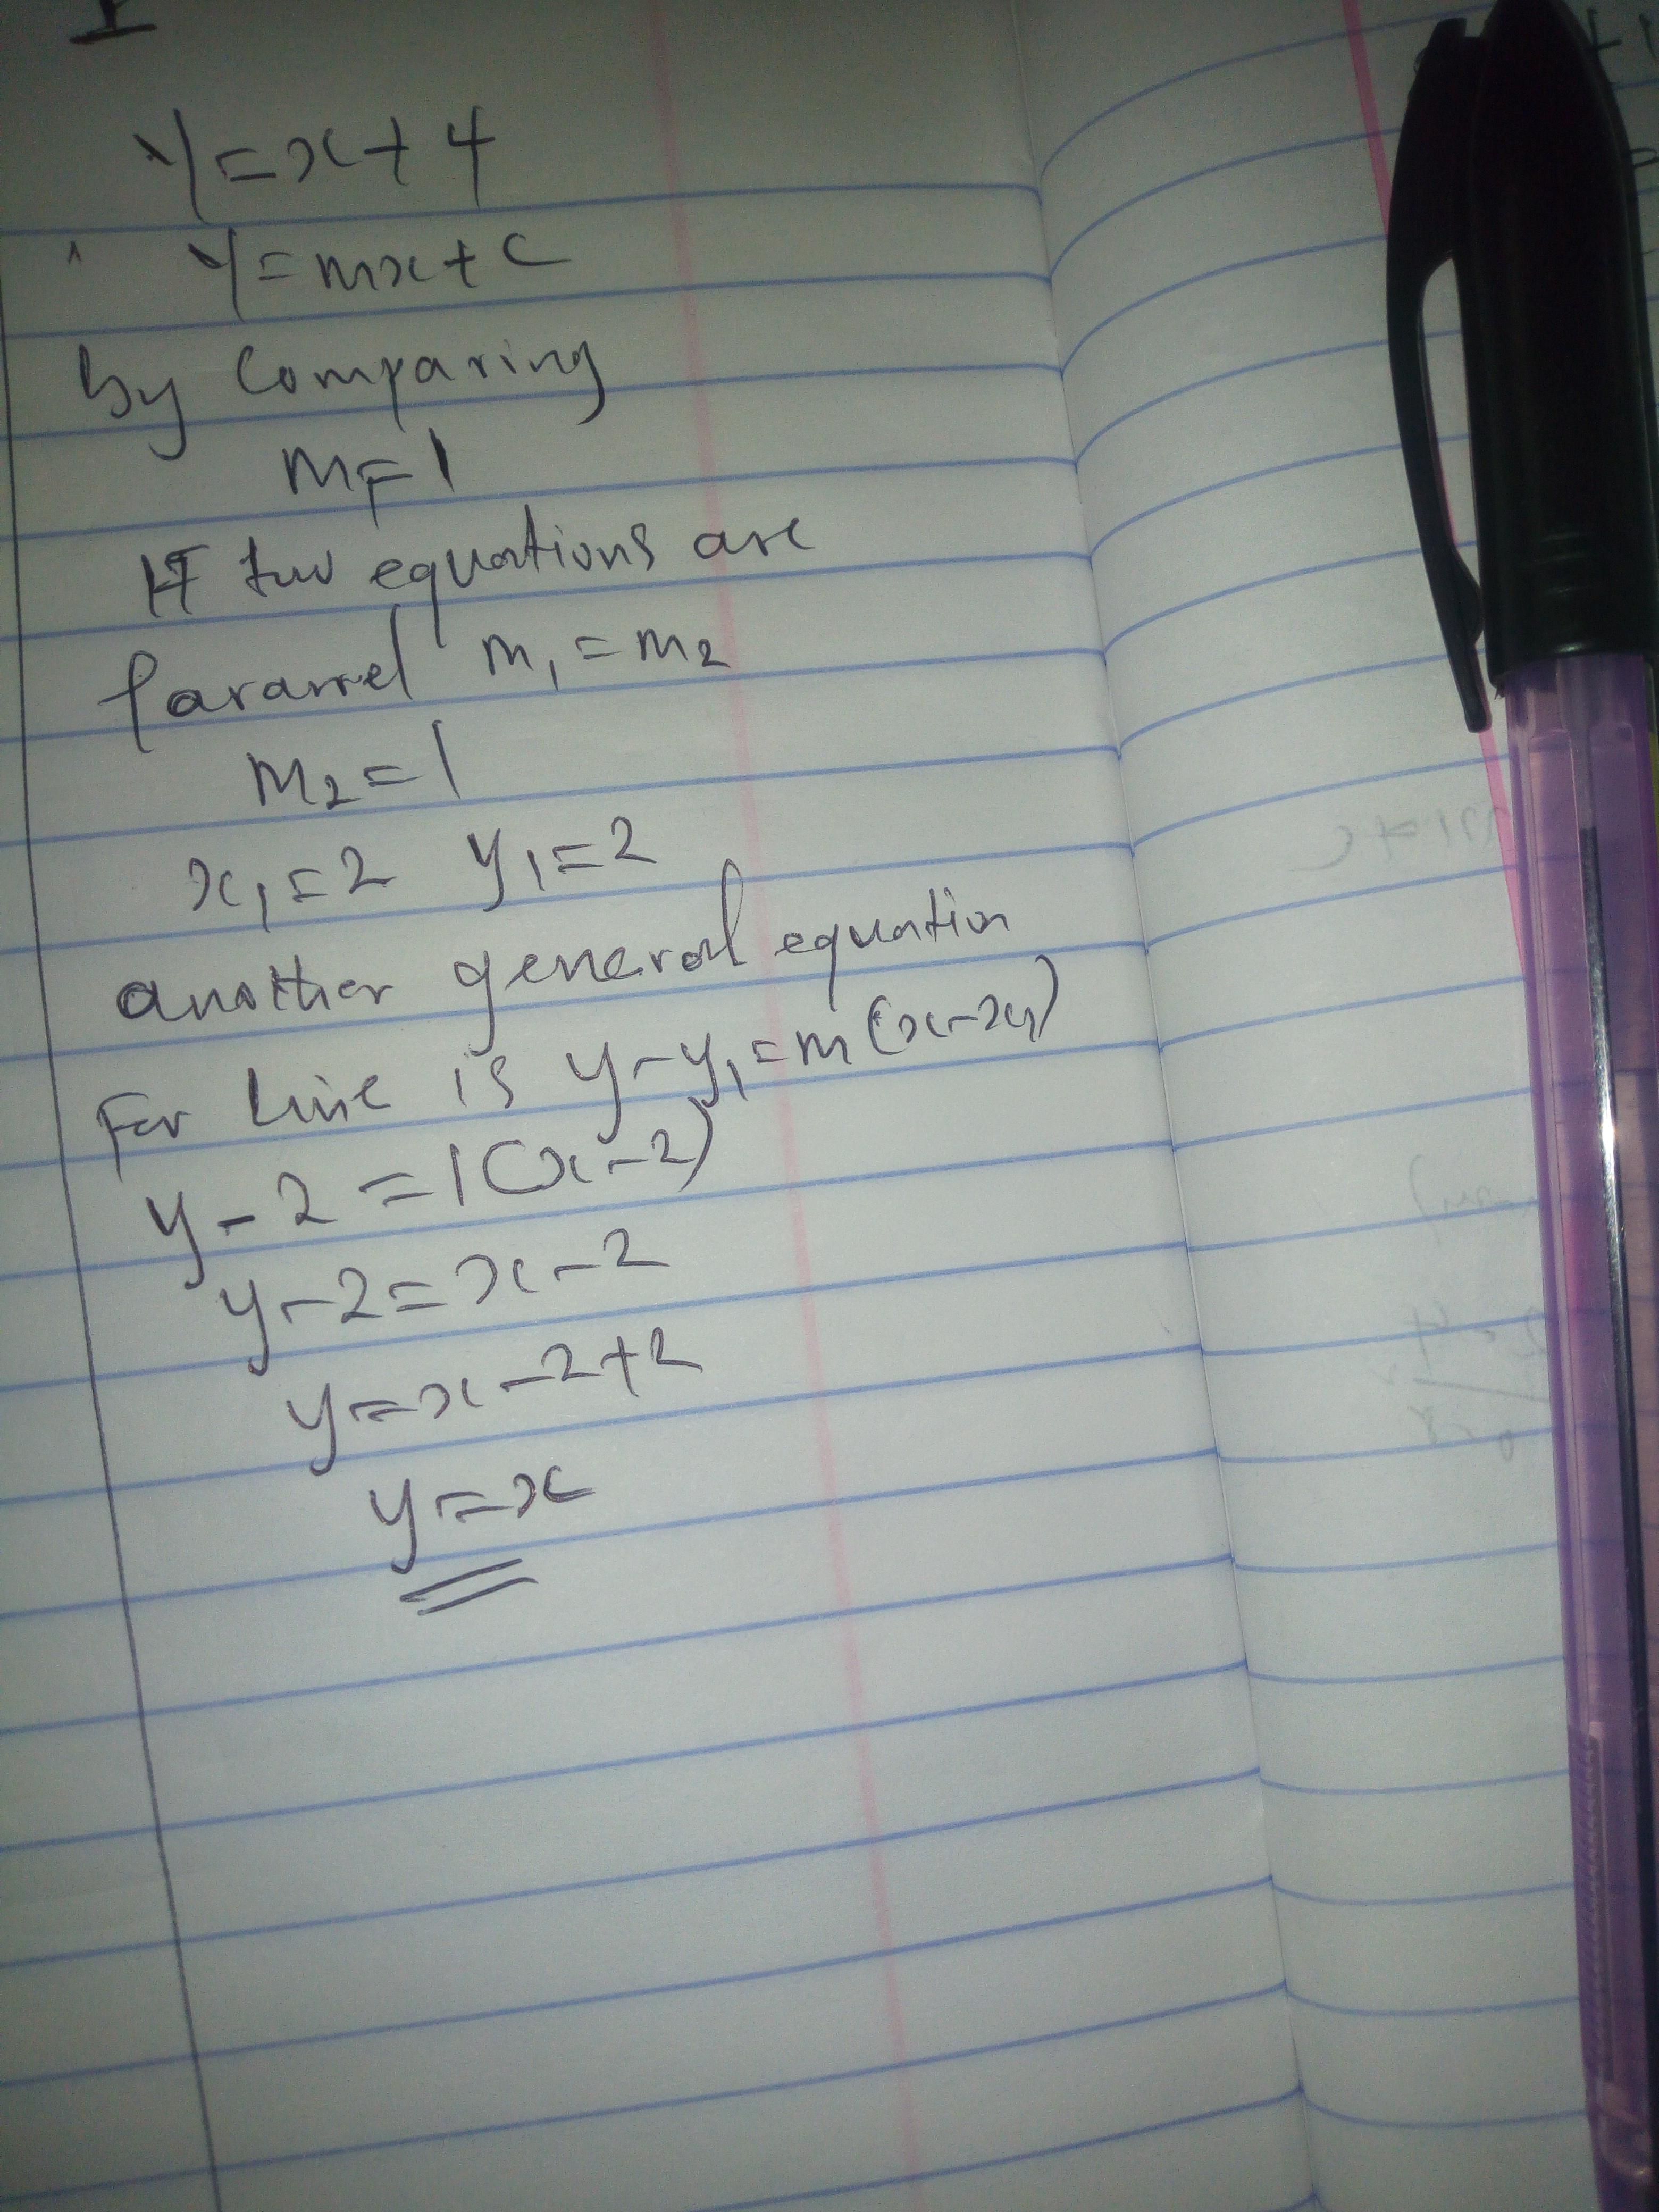 I
y=x+4
y=mx+c
by Comparing
m=1
If two equations are
Pararrel m₁=m₂
m₂=1
x₁=2 y₁=2
another general equation
For Line is y-y₁=m(x-x₁)
y-2=1(x-2)
y-2=x-2
y=x-2+2
y=x